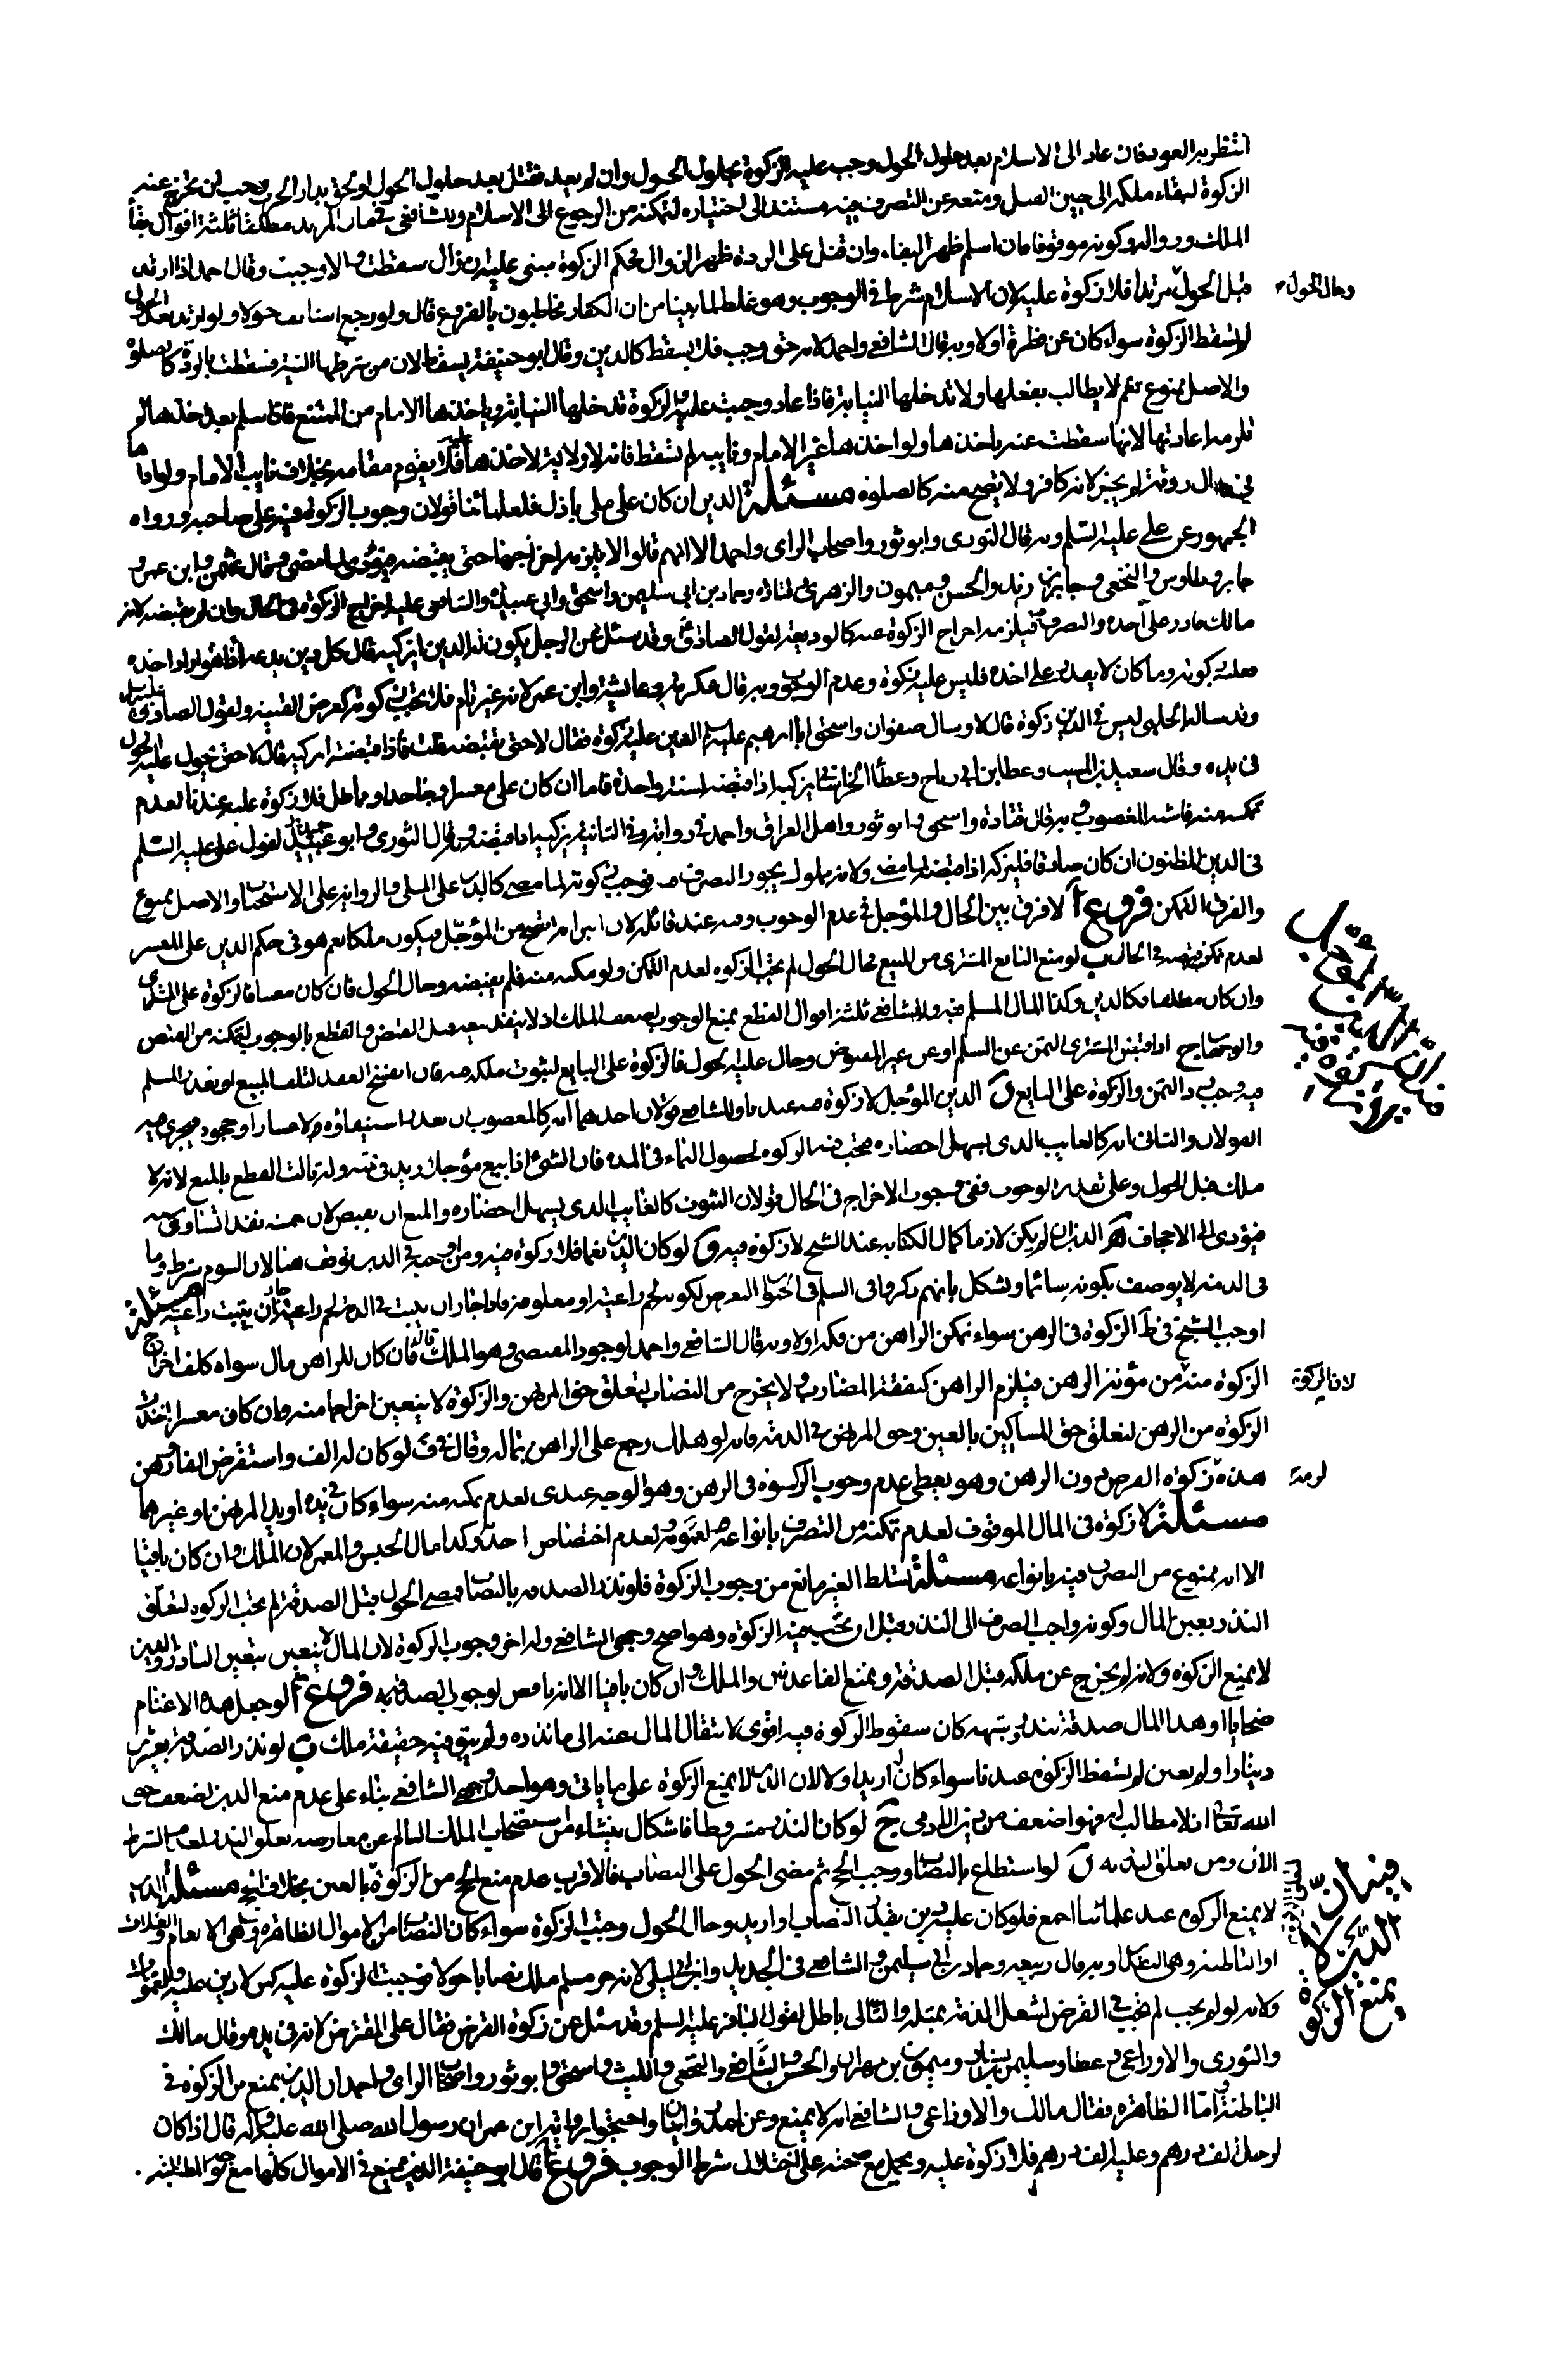 انتظر به العود فان عاد الى الاسلام بعد حلول الحول وجب عليه الزكوة بحلول الحول وان لم يعد فقتل بعد حلول الحول او لحق بدار الحرب وجب ان تخرج عنه
الزكوة لبقاء ملكه الى حين القتل ومنعه عن التصرف فيه مستند الى اختياره لتمكنه من الرجوع الى الاسلام وللشافعي في مال المرتد مطلقا ثلثة اقوال بقاء
الملك وزواله وكونه موقوفا فان اسلم ظهر البقاء وان قتل على الردة ظهر الزوال فحكم الزكوة مبنى عليه ان زال سقطت والا وجبت وقال احمد اذا ارتد
قبل الحول وحال الحول مرتدا فلا زكوة عليه لان الاسلام شرط في الوجوب وهو غلط لما بينا من ان الكفار مخاطبون بالفروع قال ولو رجع استانف حولا ولو ارتد بعد الحول
لم تسقط الزكوة سواء كان عن فطرة اولا وبه قال الشافعي واحمد لانه حق وجب فلا يسقط كالدين وقال ابو حنيفة يسقط لان من شرطها النية فسقطت بالردة كالصلوة
والاصل ممنوع نعم لا يطالب بفعلها ولا تدخلها النيابة فاذا عاد وجبت عليه والزكوة تدخلها النيابة وياخذها الامام من الممتنع فان اسلم بعد اخذها لم
يلزمه اعادتها لانها سقطت عنه باخذها ولو اخذها غير الامام ونايبه لم تسقط فانه لا ولاية له لاخذها فلا يقوم مقامه بخلاف نايب الامام ولو اداها
في حال ردته لم يجز لانه كافر ولا يصح منه كالصلوة مسئلة الدين ان كان على ملى باذل فلعلمائنا قولان وجوب الزكوة فيه على صاحبه ورواه
الجمهور عن علي عليه السلم وبه قال الثورى وابو ثور واصحاب الراى واحمد الا انهم قالوا لا يلزمه اخراجها حتى يقبضه فيؤدى لما مضى وقال عثمن وابن عمر و
جابر وطاوس والنخعي وجابر بن زيد والحسن وميمون والزهرى وقتادة وحماد بن ابي سليمن واسحق وابي عبيد والشافعي عليه اخراج الزكوة في الحال وان لم يقبضه لانه
مالك قادر على اخذه والتصرف فيه فيلزمه اخراج الزكوة عنه كالوديعة لقول الصادق وقد سئل عن الرجل يكون له الدين ايزكيه قال كل دين يدعه اذا هو اراد اخذه
فعليه زكوته وما كان لا يقدر على اخذه فليس عليه زكوة وعدم الوجوب وبه قال عكرمة وعايشة وابن عمر لانه غير تام فلا تجب زكوته كعرض القنية ولقول الصادق عليه السلم
وقد ساله الحلبي ليس في الدين زكوة قال لا وسال صفوان واسحق ابا ابرهيم عليه السلم الدين عليه زكوة فقال لا حتى يقبضه قلت فاذا قبضه ايزكيه قال لا حتى يحول عليه الحول
في يده وقال سعيد بن المسيب وعطا بن ابي رباح وعطاء الخراساني يزكيه اذا قبضه لسنة واحدة فاما ان كان على معسر او جاحد او مماطل فلا زكوة عليه عندنا لعدم
تمكنه منه فاشبه المغصوب وبه قال قتادة واسحق وابو ثور واهل العراق واحمد في رواية وفي الثانية يزكيه اذا قبضه وبه قال الثورى وابو عبيد لقول على عليه السلم
في الدين المظنون ان كان صادقا فليزكه اذا قبضه لما مضى ولانه مملوك يجوز التصرف فيه فوجبت زكوته لما مضى كالدين على الملى والرواية على الاستحباب والاصل ممنوع
والفرق التمكن فروع آ لا فرق بين الحال والمؤجل في عدم الوجوب وفيه عند قائله لان البراءة تصح من المؤجل فيكون ملكا نعم هو في حكم الدين على المعسر
لعدم تمكن قبضه في الحال ب لو منع البايع المشترى من المبيع فحال الحول لم تجب الزكوة لعدم التمكن ولو مكنه منه فلم يقبضه وحال الحول فان كان معينا فالزكوة على المشترى
وان كان مطلقا فكالدين وكذا المال المسلم فيه وللشافعي ثلثة اقوال القطع بمنع الوجوب لضعف الملك اذ لا ينفذ بيعه قبل القبض والقطع بالوجوب لتمكنه من القبض
والوجهان ج اذا قبض المشترى الثمن عن السلم او عن غير المقبوض وحال عليه الحول فالزكوة على البايع لثبوت ملكه فيه فان انفسخ العقد لتلف المبيع او تعذر المسلم
فيه وجب رد الثمن والزكوة على البايع د الدين المؤجل لا زكوة فيه عندنا وللشافعي قولان احدهما انه كالمغصوب ان تعذر استيفاؤه لاعسار او جحود فيجرى فيه
القولان والثاني انه كالغايب الذى يسهل احضاره فتجب فيه الزكوة لحصول النماء في المدة فان الشئ اذا بيع مؤجلا زيد في ثمنه وله ثالث القطع بالمنع لانه لا
ملك قبل الحلول وعلى تقدير الوجوب ففي وجوب الاخراج في الحال قولان الثبوت كالغايب الذى يسهل احضاره والمنع ان يقبض لان خمسة نقدا تساوى ستة
فيؤدى الى الاجحاف ه الدين ان لم يكن لازما كمال الكتابة عند الشيخ لا زكوة فيه و لو كان الدين نعما فلا زكوة فيه ومن اوجبه في الدين توقف هنا لان السوم شرط وما
في الذمة لا يوصف بكونه سائما ويشكل بانهم ذكروا في السلم في الحيوان التعرض لكونه لحم راعية او معلوفة فاذا جاز ان يثبت في الذمة لحم راعية جاز ان يثبت راعية مسئلة
اوجب الشيخ في ط الزكوة في الرهن سواء تمكن الراهن من فكه اولا وبه قال الشافعي واحمد لوجود المقتضى وهو الملك قال فان كان للراهن مال سواه كلف اخراج
الزكوة منه لان الزكوة من مؤنة الرهن فيلزم الراهن كنفقة المضارب ولا يخرج من النصاب لتعلق حق المرتهن والزكوة لا يتعين اخراجها منه وان كان معسرا اخذت
الزكوة من الرهن لتعلق حق المساكين بالعين وحق المرتهن في الذمة فانه لو هلك رجع على الراهن بماله وقال في ف لو كان له الف واستقرض الفا ورهن
هذه لزمه زكوة القرض دون الرهن وهو يعطى عدم وجوب الزكوة في الرهن وهو الوجه عندى لعدم تمكنه منه سواء كان في يده او يد المرتهن او غيرهما
مسئلة لا زكوة في المال الموقوف لعدم تمكنه من التصرف بانواعه ولعدم اختصاص احد به وكذا مال الحبس والمعمر لان الملك وان كان باقيا
الا انه ممنوع من التصرف فيه بانواعه مسئلة تسلط الغير مانع من وجوب الزكوة فلو نذر الصدقة بالنصاب فمضى الحول قبل الصدقة لم تجب الزكوة لتعلق
النذر بعين المال وكونه واجب الصرف الى النذر قبل ان تجب فيه الزكوة وهو اصح وجهى الشافعي والاخر وجوب الزكوة لان المال لا يتعين بتعين الناذر والدين
لا يمنع الزكوة ولانه لم يخرج عن ملكه قبل الصدقة ونمنع القاعدتين والملك وان كان باقيا الا انه ناقص لوجوب الصدقة به فروع آ لو جعل هذه الاغنام
ضحايا او هذا المال صدقة بنذر وشبهه كان سقوط الزكوة فيه اقوى لانتقال المال عنه الى ما نذره ولم يبق فيه حقيقة ملك ب لو نذر الصدقة بعشرين
دينارا ولم يعين لم تسقط الزكوة عندنا سواء كان له ازيد اولا لان الدين لا يمنع الزكوة على ما ياتى وهو احد وجهى الشافعي بناء على عدم منع الدين لضعف حق
الله تعالى اذ لا مطالب له فهو اضعف من دين الادمى ج لو كان النذر مشروطا فاشكال ينشاء من استصحاب الملك السالم عن معارضة تعلق النذر لعدم الشرط
الان ومن تعلق النذر به د لو استطاع بالنصاب ووجب الحج ثم مضى الحول على النصاب فالاقرب عدم منع الحج من الزكوة لتعلق الزكوة بالعين بخلاف الحج مسئلة الدين
لا يمنع الزكوة عند علمائنا اجمع فلو كان عليه دين بقدر النصاب او ازيد وحال الحول وجبت الزكوة سواء كان النصاب من الاموال الظاهرة وهى الانعام والغلات
او الباطنة وهى النقدان وبه قال ربيعة وحماد بن ابي سليمن والشافعي في الجديد وابن ابي ليلى لانه حر مسلم ملك نصابا حولا فوجبت الزكوة عليه كمن لا دين عليه وللعمومات
ولانه لو لم يجب لم تجب في القرض لشغل الذمة بمثله والتالى باطل لقول الباقر عليه السلم وقد سئل عن زكوة القرض فقال على المقترض لانه في يده وقال مالك
والثورى والاوزاعي وعطا وسليمن بن يسار وميمون بن مهران والحسن والشافعي والنخعي والليث واسحق وابو ثور واصحاب الراى واحمد ان الدين يمنع من الزكوة في
الباطنة واما الظاهرة فقال مالك والاوزاعي والشافعي انه لا يمنع وعن احمد روايتان واحتجوا برواية ابن عمر ان رسول الله صلى الله عليه وآله قال اذا كان
لرجل الف درهم وعليه الف درهم فلا زكوة عليه ويحمل مع صحته على اختلال شرط الوجوب فروع آ قال ابو حنيفة الدين يمنع في الاموال كلها مع توجه المطالبة
وحال الحول
لان الزكوة
لزمه
في ان الدين لا يمنع الزكوة